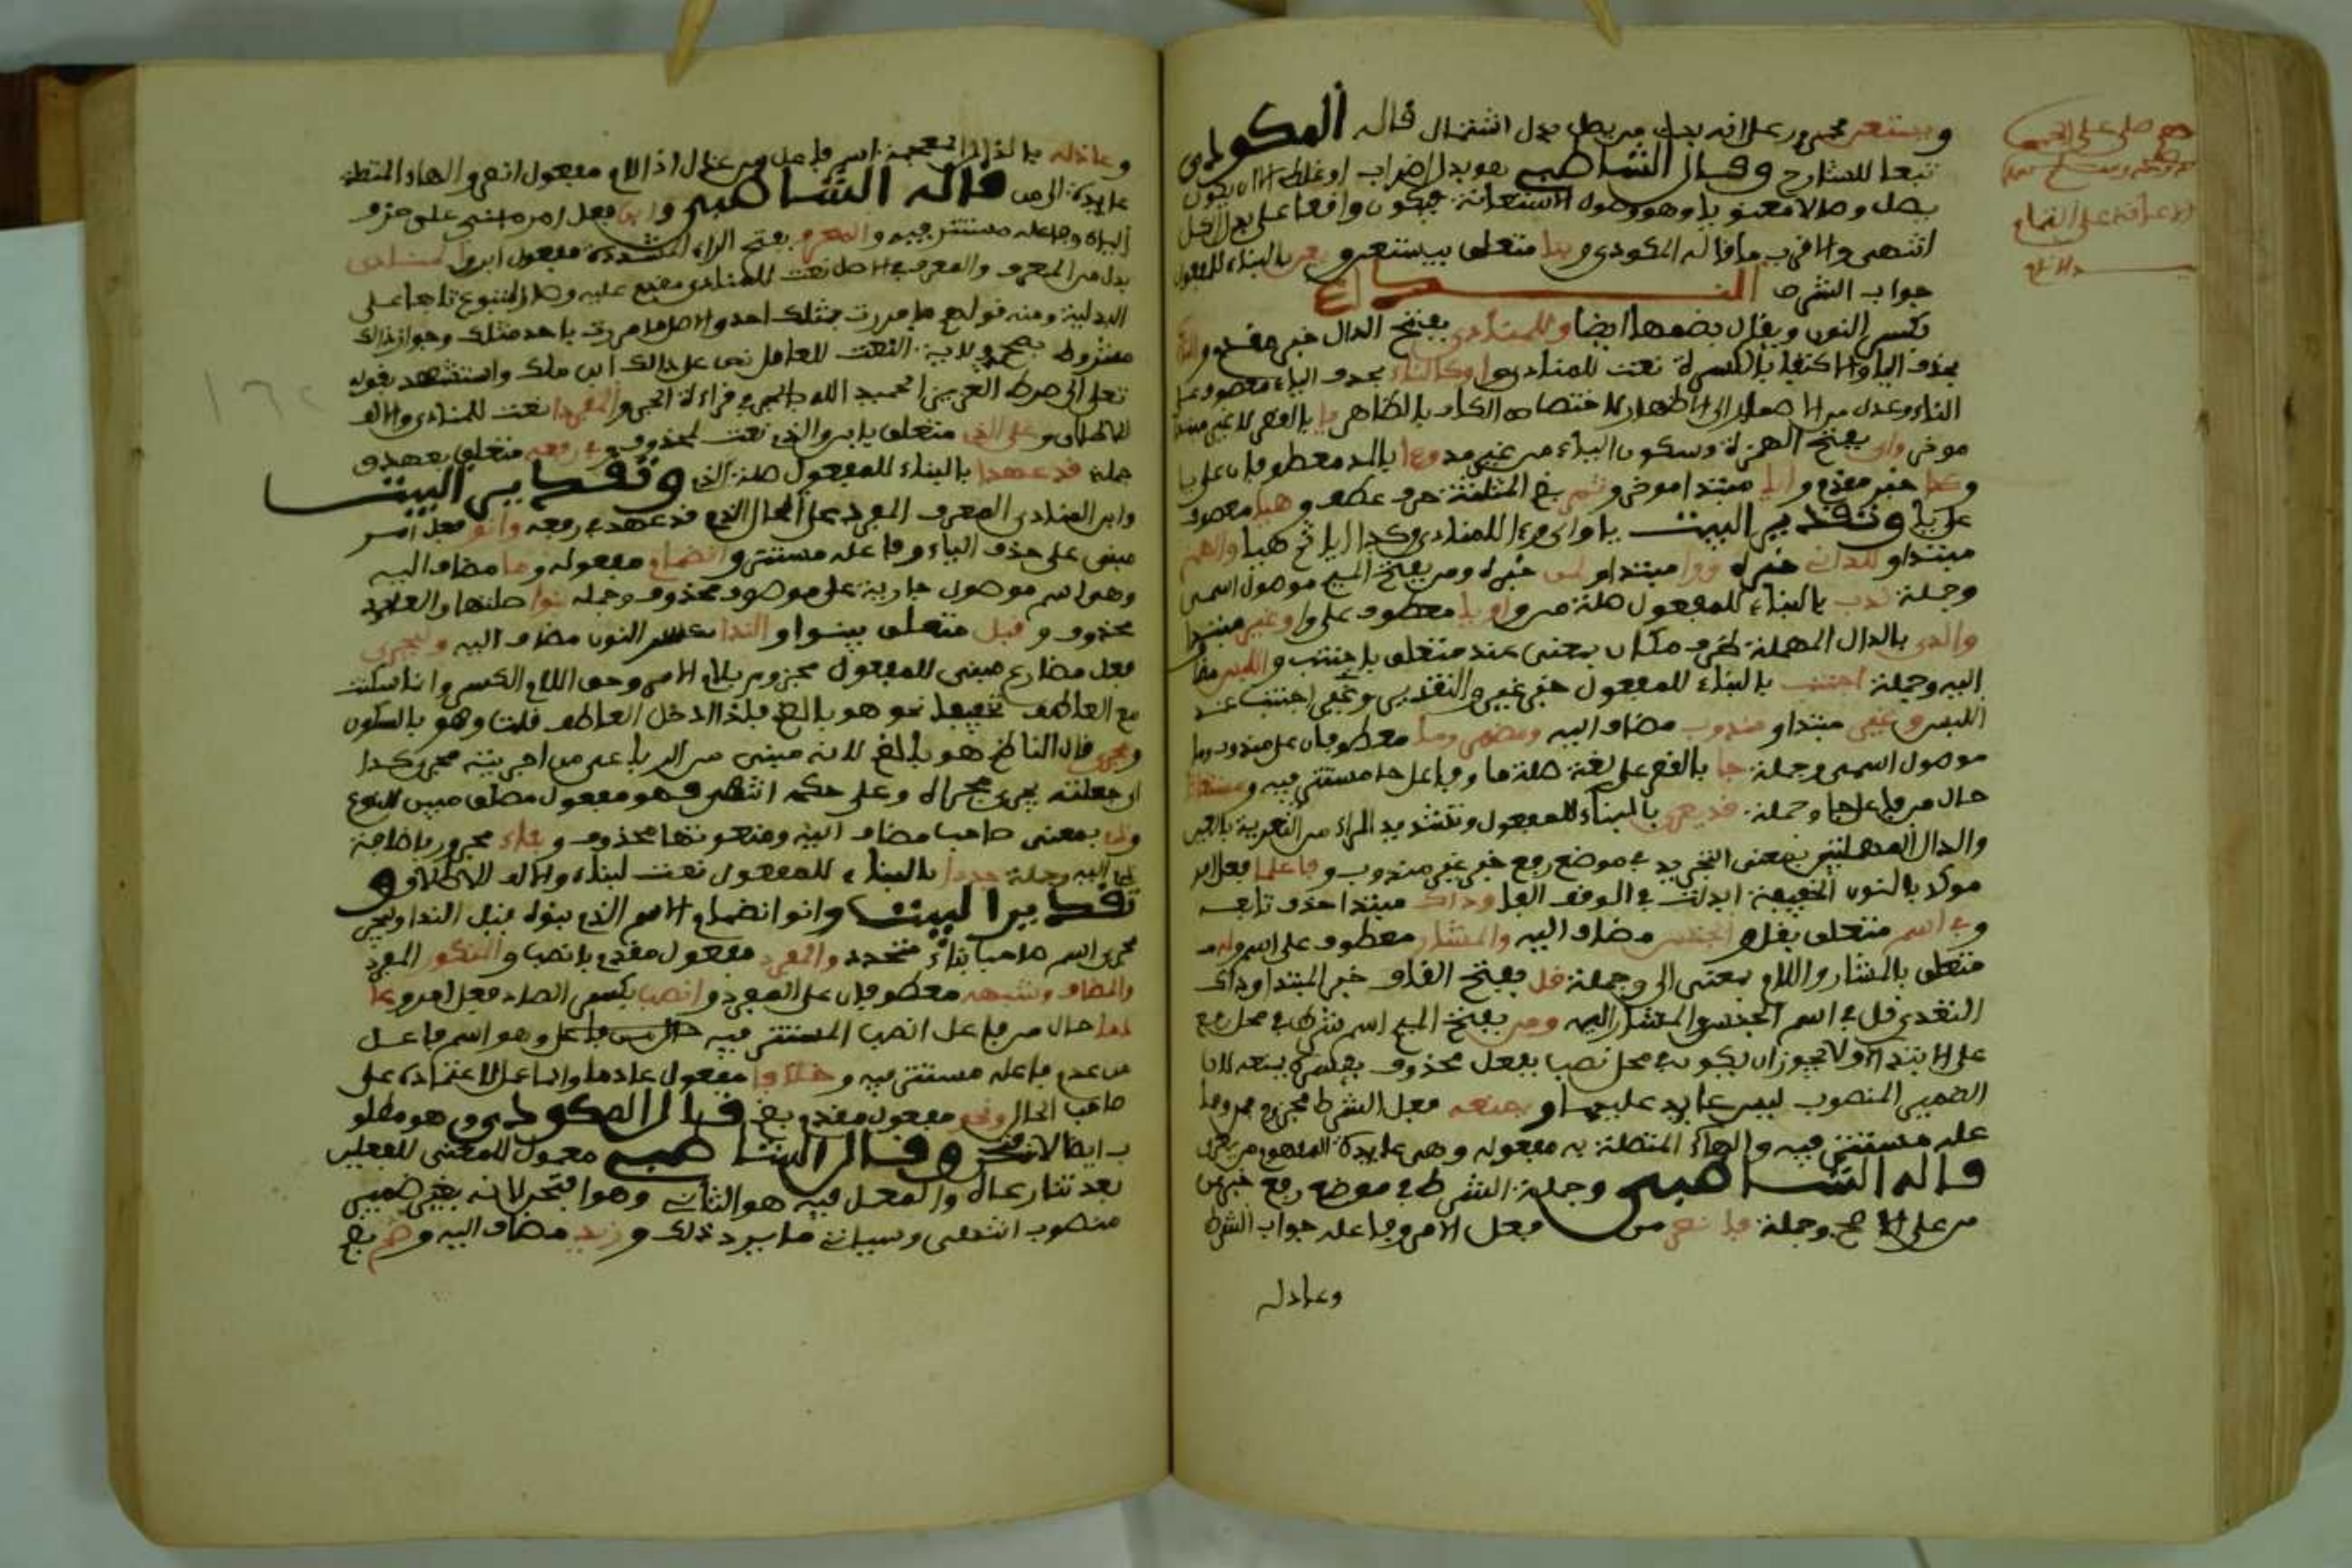 ويستعن مجرور على انه بدل من يصل بدل اشتمال قاله المكودي
تبعا للشارح وقال الشاطبي هو بدل اضراب او غلط الا ان يكون
يصل وصلا معنويا وهو وصول الاستعانة فيكون واقعا على بدل الكل
انتهى والاقرب ما قاله المكودي وبنا متعلق بيستعن ويعن بالبناء للمفعول
جواب الشرط النداء
بكسر النون ويقال بضمها ايضا وللمنادى بفتح الدال خبر مقدم والناء
بحذف الياء والاكتفاء بالكسرة نعت للمنادى او كالناء بحذف الياء معطوف على
الناء وعدل من الاضمار الى الاظهار لاختصاص الكاف بالظاهر يا بالقصر للاغير مبتدا
موخر واي بفتح الهمزة وسكون الياء من غير مد وءا بالمد معطوفان على يا
وكذا خبر مقدم وايا مبتدا موخر وثم بضم المثلثة حرف عطف وهيا معطوف
على يا وتقدير البيت يا واي وءا للمنادى وكذا ايا ثم هيا والهمز
مبتدا وللداني خبره ووا مبتدا ولمن خبره ومن بفتح الميم موصول اسمي
وجملة ندب بالبناء للمفعول صلة من او يا معطوف على وا وغير مبتدا
والدى بالدال المهملة ظرف مكان بمعنى عند متعلق باجتنب واللبس مضاف
اليه وجملة اجتنب بالبناء للمفعول خبر غير والتقدير وغير اجتنب عند
اللبس وغير مبتدا ومندوب مضاف اليه ومضمر وما معطوفان على مندوب وما
موصول اسمي وجملة جا بالقصر على لغة صلة ما وفاعل جا مستتر فيه ومستغاثا
حال من فاعل جا وجملة قد يعرى بالبناء للمفعول وتشديد الراء من التعرية بالعين
والدال المهملتين بمعنى التجريد في موضع رفع خبر غير مندوب وفاعلما فعل امر
موكد بالنون الخفيفة ابدلت في الوقف الفا وذاك مبتدا حذف تابعه
وفي اسم متعلق بقل والجنس مضاف اليه والمشار معطوف على اسم وله
متعلق بالمشار واللام بمعنى الى وجملة قل بفتح القاف خبر المبتدا وذاك
التعدي قل في اسم الجنس والمشار اليه ومن بفتح الميم اسم شرط في محل رفع
على الابتداء ولا يجوز ان يكون في محل نصب بفعل محذوف يفسره يمنعه لان
الضمير المنصوب ليس عايد عليها ويمنعه فعل الشرط مجزوم بمن وفا
عله مستتر فيه والهاء المتصلة به مفعوله وهي عايدة المفهوم من يعرى
قاله الشاطبي وجملة الشرط في موضع رفع خبر من
من على الاصح وجملة فانصر من فعل الامر وفاعله جواب الشرط
وعاذله
وعاذله بالذال المعجمة اسم فاعل من عذل اذا لام مفعول انصر والهاء المتصلة
عايدة الى من قاله الشاطبي وابن فعل امر مبني على حذف
الياء وفاعله مستتر فيه والمعرف بفتح الراء المشددة مفعول ابن والمنادى
بدل من المعرف والمعرف في الاصل نعت للمنادى مقدم عليه وصار المتبوع تابعا على
البدلية ومنه قولهم ما مررت بمثلك احد والاصل ما مررت باحد مثلك وجواز ذلك
مشروط بصحة ولاية النعت للعامل نص على ذالك ابن ملك واستشهد بقوله
تعلى الى صرط العزيز الحميد الله بالجر في قراءة الجر والمفردا نعت للمنادى والالف
للاطلاق وعلى الذي متعلق بابن والذي نعت لمحذوف وفي رفعه متعلق بعهد و
جملة قد عهدا بالبناء للمفعول صلة الذي وتقدير البيت
وابن المنادى المعرف المفرد على الحال الذي قد عهد في رفعه وانو فعل امر
مبني على حذف الياء وفاعله مستتر وانضمام مفعوله وما مضاف اليه
وهي اسم موصول جارية على موصوف محذوف وجملة بنوا صلتها والعايد
محذوف وقبل متعلق ببنوا والندا بكسر النون مضاف اليه وليجرى
فعل مضارع مبني للمفعول مجزوم بلام الامر وحق اللام الكسر وانما سكنت
مع العاطف تخفيفا نحو هو بالضم فاذا ادخل العاطف قلت وهو بالسكون
ويجرى قال الناظم هو بالضم لانه مبني من الرباعي من اجريته مجرى كذا
اي جعلته يجري مجراه وعلى حكمه انتهى فهو مفعول مطلق مبين للنوع
وذي بمعنى صاحب مضاف اليه ومنعوتها محذوف وبناء مجرور باضافة
ذي اليه وجملة جددا بالبناء للمفعول نعت لبناء والالف للاطلاق و
تقدير البيت وانو انضمام الاسم الذي بنوه قبل الندا وليجر
مجرى اسم صاحب بناء متجدد والمفرد مفعول مقدم بانصب والمنكور المفرد
والمضاف وشبهه معطوفان على المفرد وانصب بكسر الصاد فعل امر وعا
دما حال من فاعل انصب المستتر فيه وهو اسم فاعل
من عدم فاعله مستتر فيه وخلافا مفعول عادما وانما عمل لاعتماده على
صاحب الحال ونحو مفعول مقدم بضم قال المكودي وهو مطلو
ب ايضا لافتح وقال الشاطبي معمول للمعنى للفعلين
بعد تنازعاه والمعمل فيه هو الثاني وهو افتحن لانه بغير ضمير
منصوب انتهى وسياتي ما يرد ذلك وزيد مضاف اليه وضم بضم